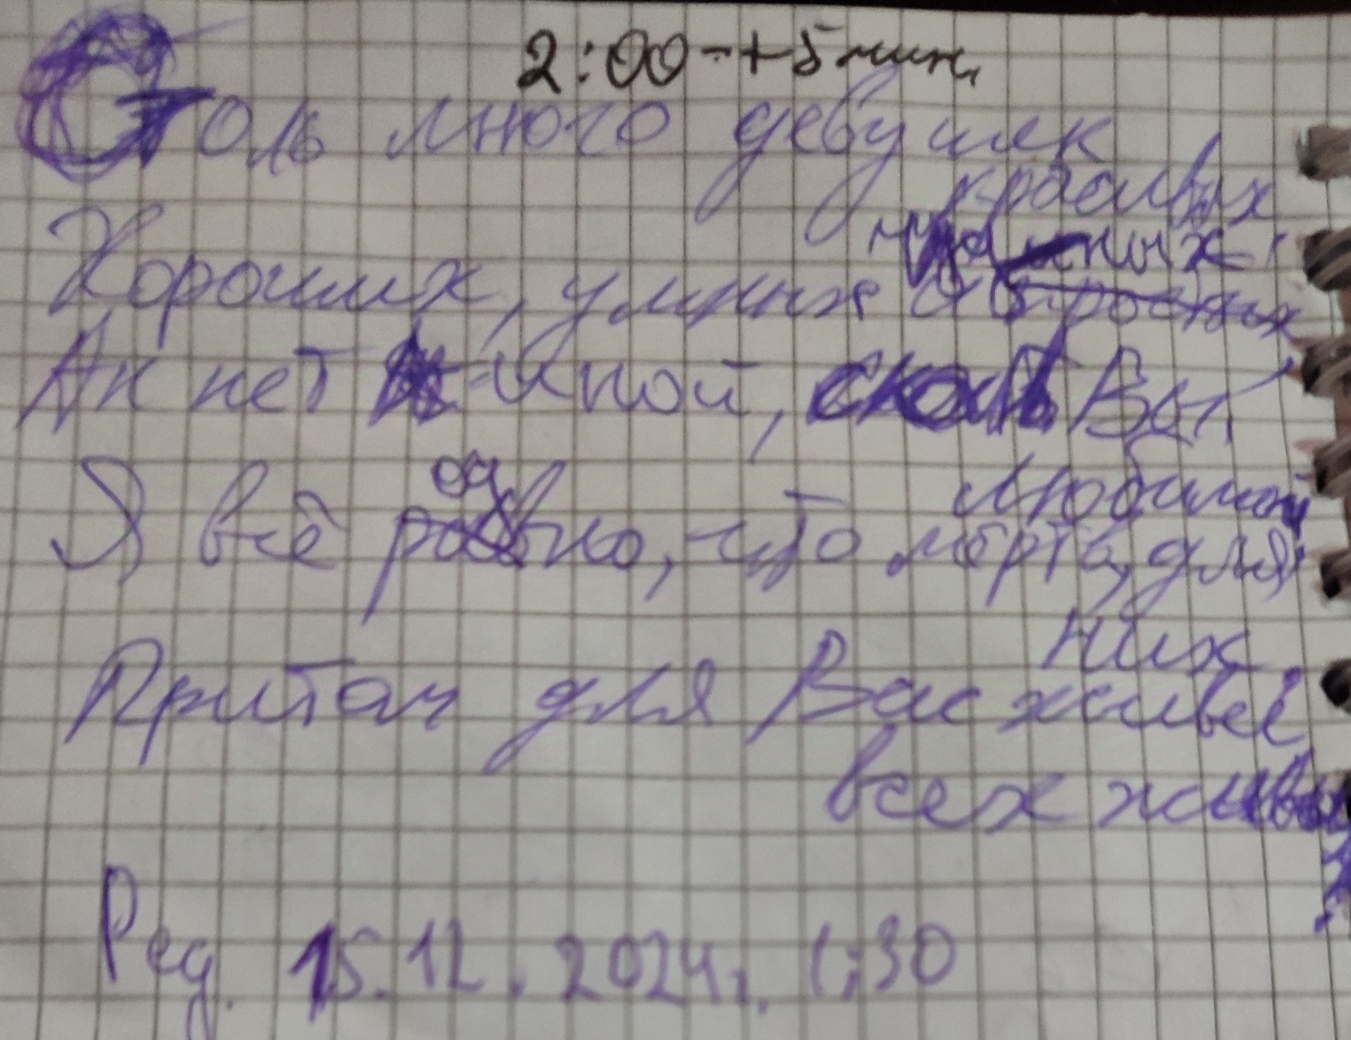 2:00-+5 мин.
Столь много девушек
красивых
Хороших, умных
Ан нет иной, Вы
любимой
Я всё равно, что мёртв для
них
Притом для Вас живее
всех живых
Ред. 15.12.2024г. 1:30